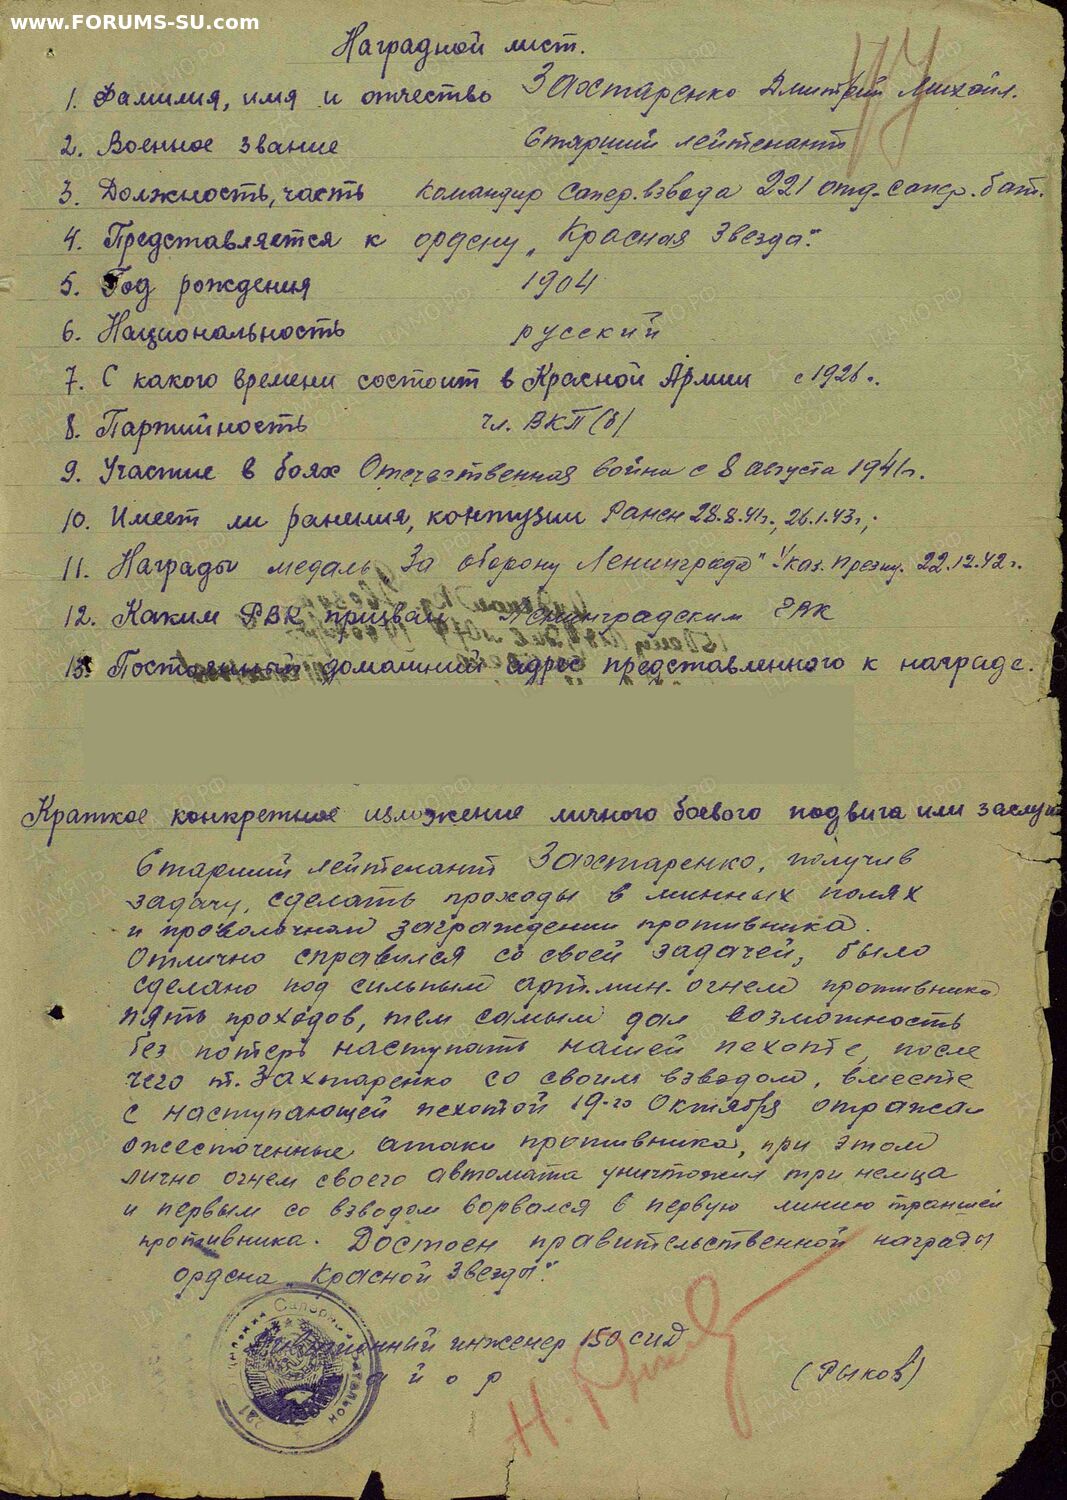 www.FORUMS-SU.com
Наградной лист.
1. Фамилия, имя и отчество Захтаренко Дмитрий Михайл.
2. Военное звание Старший лейтенант
3. Должность, часть командир сапер. взвода 221 отд. сапер. бат.
4. Представляется к ордену „Красная Звезда".
5. Год рождения 1904
6. Национальность русский
7. С какого времени состоит в Красной Армии с 1926 г.
8. Партийность чл. ВКП(б)
9. Участие в боях Отечественная война с 8 августа 1941г.
10. Имеет ли ранения, контузии Ранен 28.8.41г., 26.1.43г.
11. Награды медаль За оборону Ленинграда" Указ. През. 22.12.42 г.
12. Каким РВК призван Ленинградским ГВК
13. Постоянный домашний адрес представленного к награде.
Краткое конкретное изложение личного боевого подвига или заслуг
Старший лейтенант Захтаренко, получив
задачу, сделать проходы в минных полях
и проволочном заграждении противника.
Отлично справился со своей задачей, было
сделано под сильным арт. мин. огнем противника
пять проходов, тем самым дал возможность
без потерь наступать нашей пехоте, после
чего т. Захтаренко со своим взводом, вместе
с наступающей пехотой 19-го Октября отражал
ожесточенные атаки противника, при этом
лично огнем своего автомата уничтожил три немца
и первым со взводом ворвался в первую линию траншей
противника. Достоен правительственной награды
ордена „Красной Звезды".
Дивизионный инженер 150 сид
майор (Рыков)